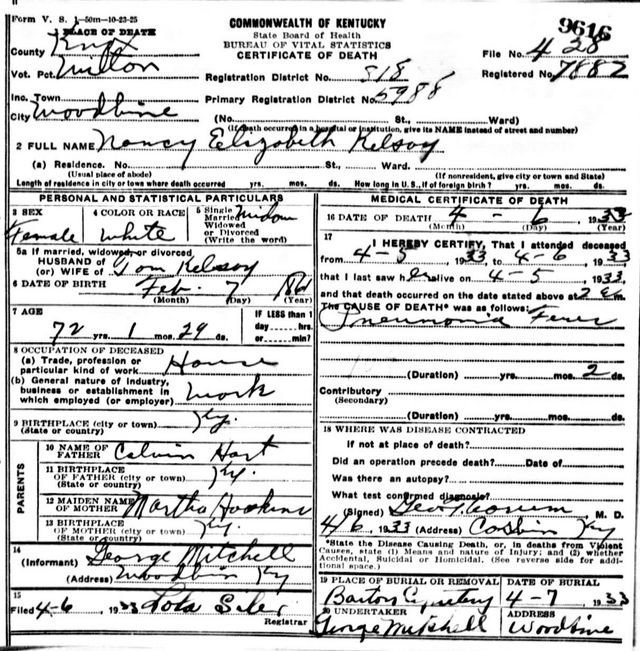 Form V. S. 1—50m—10-23-25
COMMONWEALTH OF KENTUCKY
State Board of Health
BUREAU OF VITAL STATISTICS
CERTIFICATE OF DEATH
9616
File No. 428
Registered No. 7882
1 PLACE OF DEATH
County Knox
Vot. Pct. Milton
Inc. Town
City Woodbine
Registration District No. 518
Primary Registration District No. 5988
(No. St., Ward.
(If death occurred in a hospital or institution, give its NAME instead of street and number)
2 FULL NAME Nancy Elizabeth Kelsoy
(a) Residence. No. St., Ward.
(Usual place of abode) (If nonresident, give city or town and State)
Length of residence in city or town where death occurred yrs. mos. ds. How long in U. S., if of foreign birth? yrs. mos. ds.
PERSONAL AND STATISTICAL PARTICULARS
3 SEX Female
4 COLOR OR RACE White
5 Single Married Widowed or Divorced (Write the word) Widow
5a If married, widowed, or divorced
HUSBAND OF (or) WIFE of Tom Kelsoy
6 DATE OF BIRTH Feb. 7
(Month) (Day) (Year)
7 AGE 72 yrs. 1 mos. 29 ds.
IF LESS than 1 day hrs. or min.
8 OCCUPATION OF DECEASED
(a) Trade, profession or particular kind of work House
(b) General nature of industry, business or establishment in which employed (or employer) work
9 BIRTHPLACE (city or town) (State or country) Ky.
PARENTS
10 NAME OF FATHER Calvin Hart
11 BIRTHPLACE OF FATHER (city or town) (State or country) Ky.
12 MAIDEN NAME OF MOTHER Martha Hoskins
13 BIRTHPLACE OF MOTHER (city or town) (State or country) Ky.
14 (Informant) George Mitchell
(Address) Woodbin Ky
15 Filed 4-6, 1933 Lola Siler
Registrar
MEDICAL CERTIFICATE OF DEATH
16 DATE OF DEATH 4 - 6 1933
(Month) (Day) (Year)
17 I HEREBY CERTIFY, That I attended deceased
from 4-5, 1933, to 4-6, 1933,
that I last saw her alive on 4-5, 1933,
and that death occurred on the date stated above at 2 m.
The CAUSE OF DEATH* was as follows:
Pneumonia Fever
(Duration) yrs. mos. 2 ds.
Contributory
(Secondary)
(Duration) yrs. mos. ds.
18 WHERE WAS DISEASE CONTRACTED
If not at place of death?
Did an operation precede death? Date of
Was there an autopsy?
What test confirmed diagnosis?
(Signed) M. D.
4/6 1933 (Address) Corbin Ky
*State the Disease Causing Death, or, in deaths from Violent
Causes, state (1) Means and nature of Injury; and (2) whether
Accidental, Suicidal or Homicidal. (See reverse side for addi-
tional space.)
19 PLACE OF BURIAL OR REMOVAL Barton Cemetery
DATE OF BURIAL 4-7 1933
20 UNDERTAKER George Mitchell
ADDRESS Woodbine